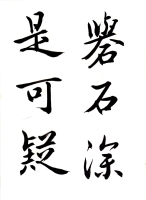 礜石深
是可疑